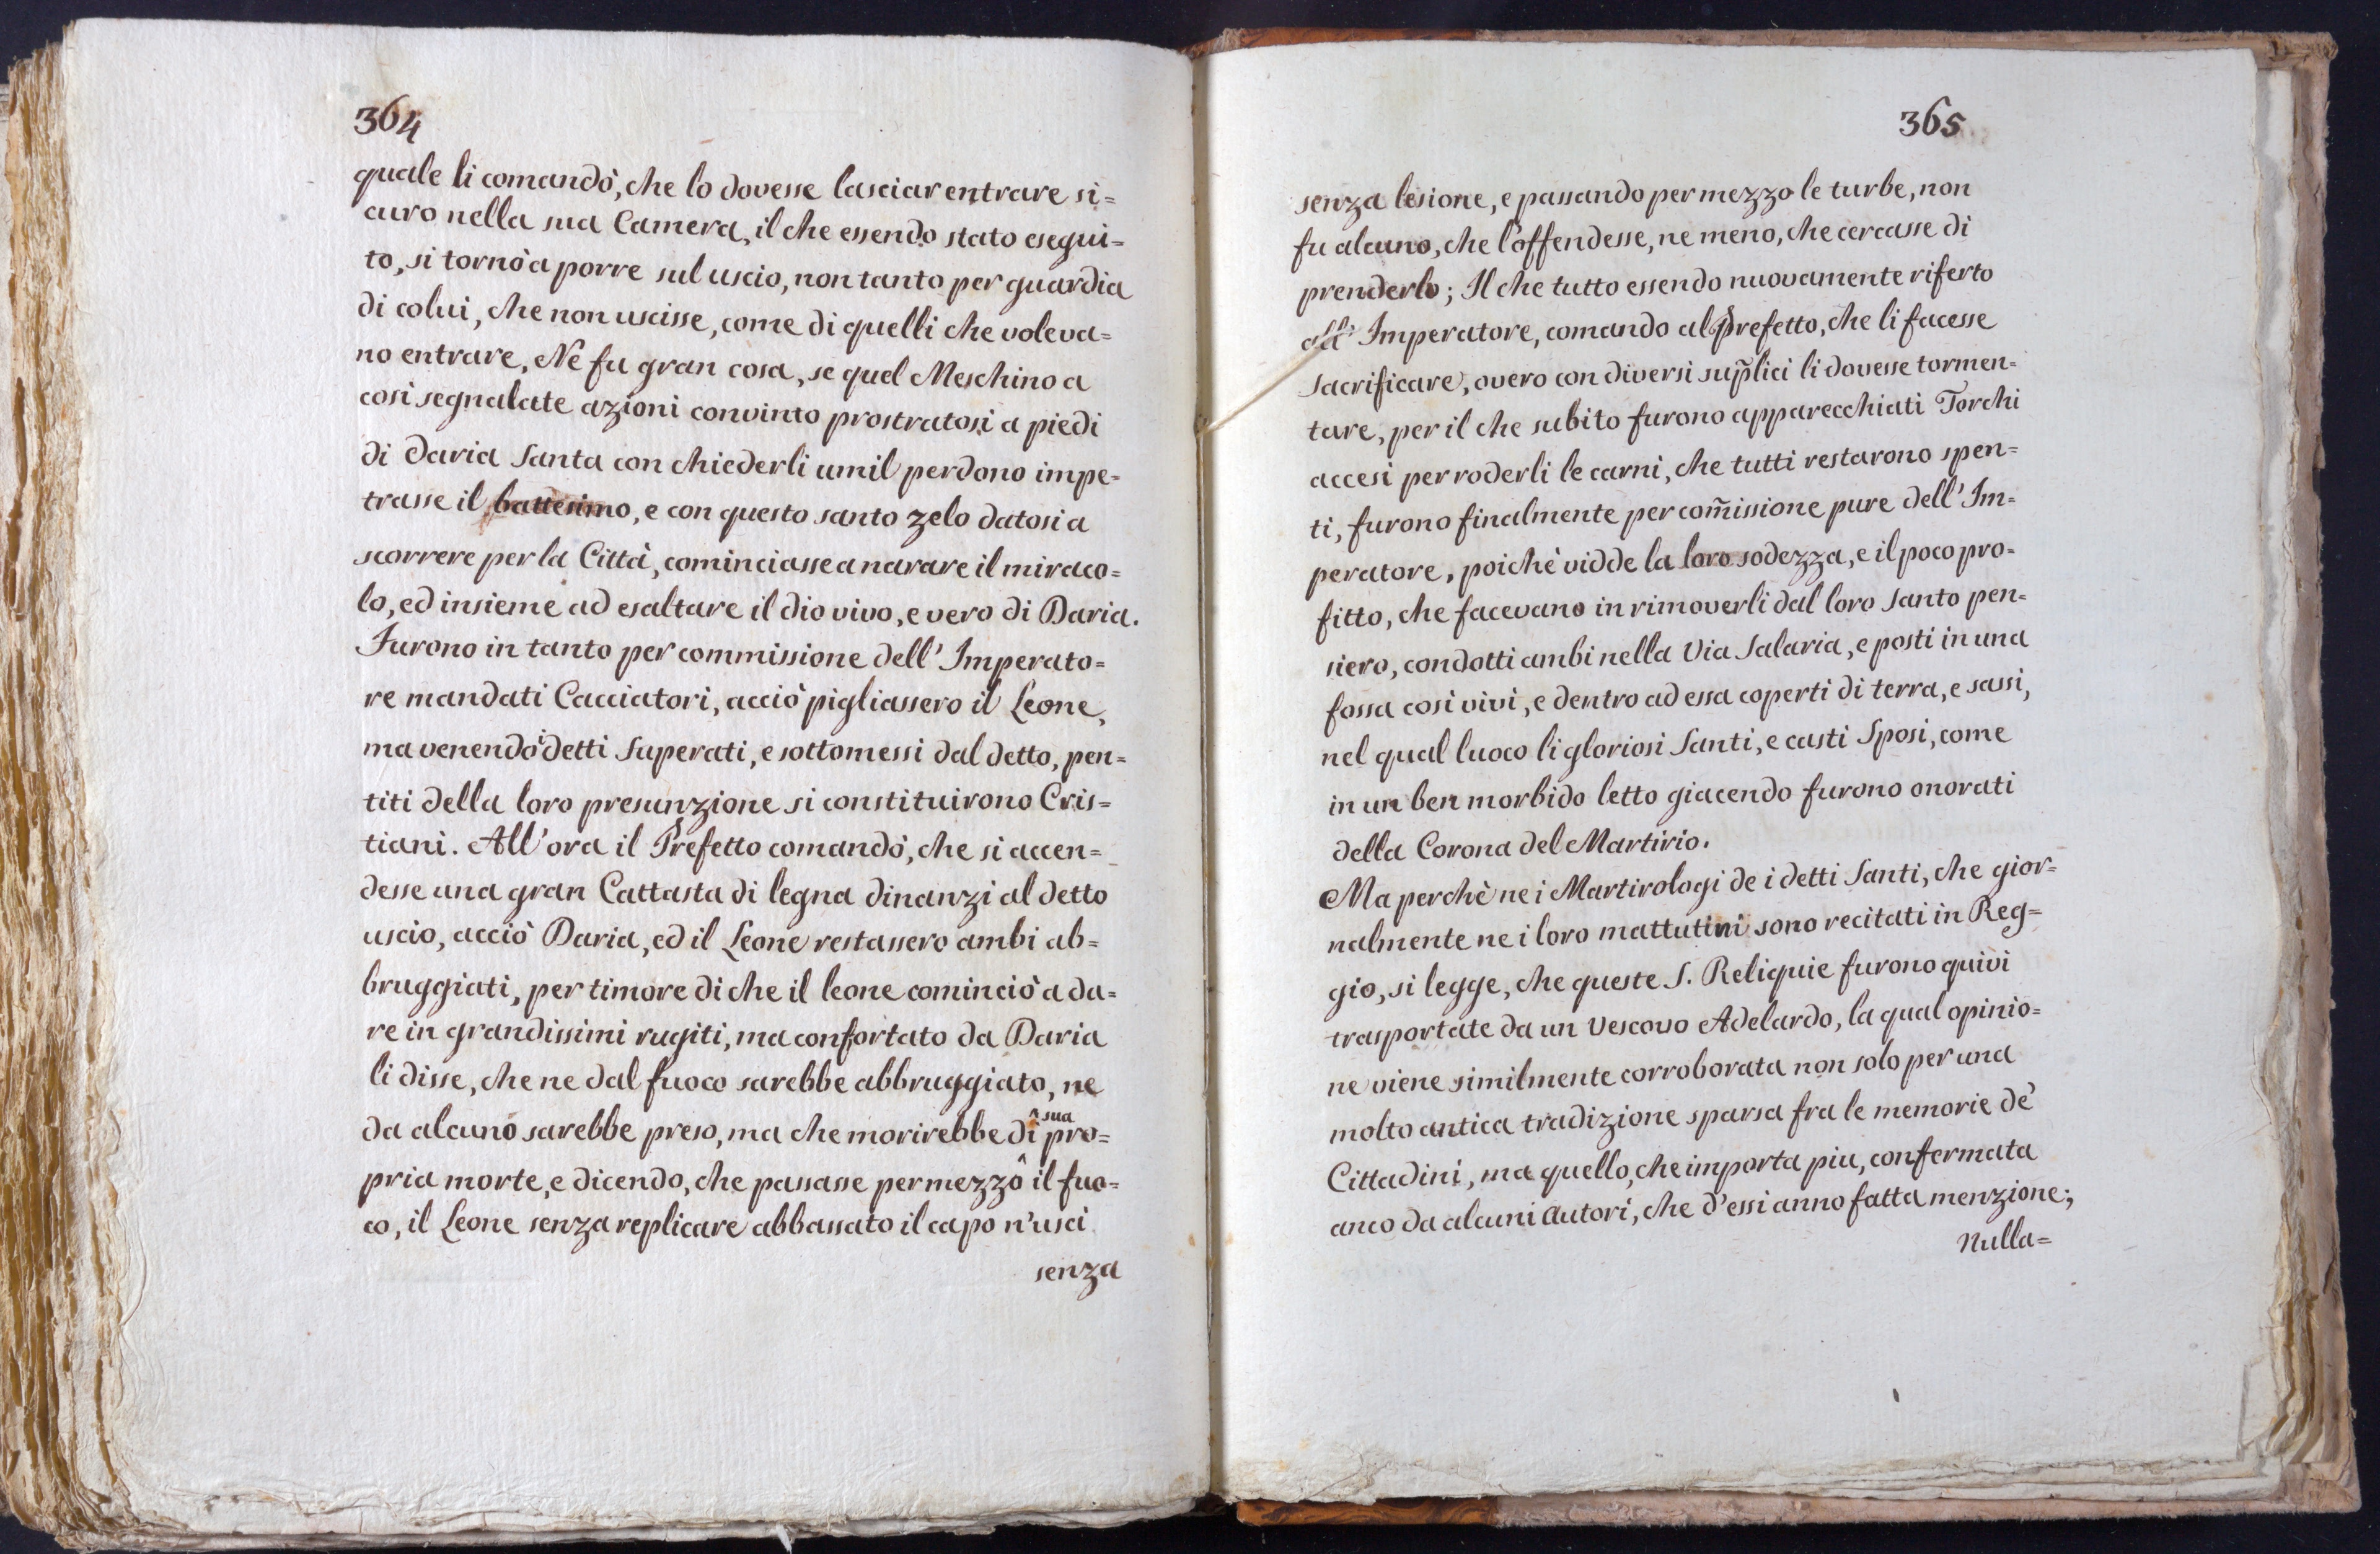 364
quale li comandò, che lo dovesse lasciar entrare si=
curo nella sua Camera, il che essendo stato esegui=
to, si tornò a porre sul uscio, non tanto per guardia
di colui, che non uscisse, come di quelli che voleva=
no entrare, Nè fu gran cosa, se quel Meschino a
così segnalate azioni convinto prostratosi a piedi
di Daria Santa con chiederli umil perdono impe=
trasse il battesimo, e con questo santo zelo datosi a
scorrere per la Città, cominciasse a narare il miraco=
lo, ed insieme ad esaltare il dio vivo, e vero di Daria.
Furono in tanto per commissione dell' Imperato=
re mandati Cacciatori, acciò pigliassero il Leone,
ma venendo i detti Superati, e sottomessi dal detto, pen=
titi della loro presunzione si constituirono Cris=
tiani. All' ora il Prefetto comandò, che si accen=
desse una gran Cattasta di legna dinanzi al detto
uscio, acciò Daria, ed il Leone restassero ambi ab=
bruggiati, per timore di che il leone cominciò a da=
re in grandissimi rugiti, ma confortato da Daria
li disse, che ne dal fuoco sarebbe abbruggiato, ne
da alcuno sarebbe preso, ma che morirebbe di ^sua pro=
pria morte, e dicendo, che passasse per mezzo^ il fuo=
co, il Leone senza replicare abbassato il capo n'uscì
senza
365
senza lesione, e passando per mezzo le turbe, non
fu alcuno, che l'offendesse, ne meno, che cercasse di
prenderlo; Il che tutto essendo nuovamente riferto
all' Imperatore, comando al Prefetto, che li facesse
sacrificare, overo con diversi sup̃lici li dovesse tormen=
tare, per il che subito furono apparecchiati Torchi
accesi per roderli le carni, che tutti restarono spen=
ti, furono finalmente per com̃issione pure dell' Im=
peratore, poichè vidde la loro sodezza, e il poco pro=
fitto, che facevano in rimoverli dal loro Santo pen=
siero, condotti ambi nella Via Salaria, e posti in una
fossa così vivi, e dentro ad essa coperti di terra, e sassi,
nel qual luoco li gloriosi Santi, e casti Sposi, come
in un ben morbido letto giacendo furono onorati
della Corona del Martirio.
Ma perchè ne i Martirologi de i detti Santi, che gior=
nalmente ne i loro mattutini sono recitati in Reg=
gio, si legge, che queste S. Reliquie furono quivi
trasportate da un Vescovo Adelardo, la qual opinio=
ne viene similmente corroborata non solo per una
molto antica tradizione sparsa fra le memorie de'
Cittadini, ma quello, che importa piu, confermata
anco da alcuni Autori, che d'essi anno fatta menzione;
Nulla=